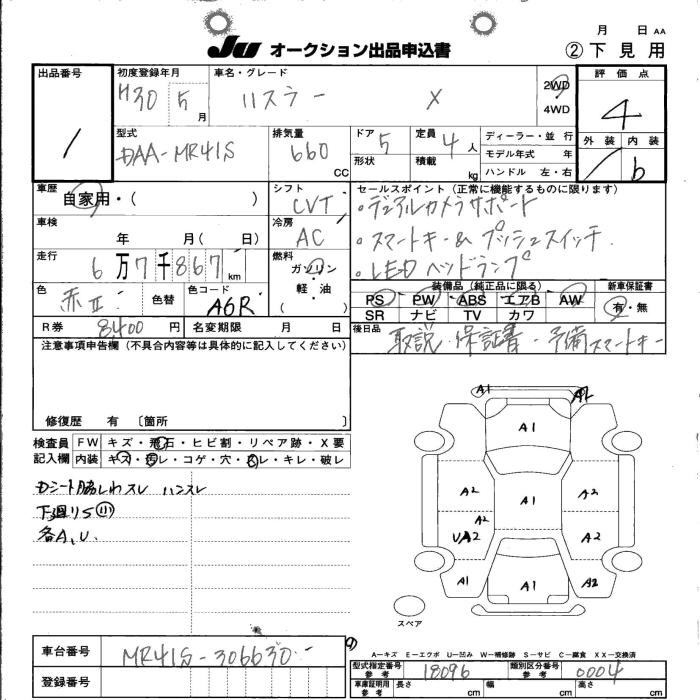 月 日 AA
JU オークション出品申込書 ②下見用
出品番号 初度登録年月 車名・グレード 2WD 4WD 評価点
1 H30 5月 ハスラー X 4
型式 排気量 ドア 定員 ディーラー・並行 外装 内装
DAA-MR41S 660 CC 5 4人 b
形状 積載 kg モデル年式 年
ハンドル 左・右
車歴 自家用・( ) シフト CVT セールスポイント(正常に機能するものに限ります)
・デュアルカメラサポート
車検 年 月( 日) 冷房 AC ・スマートキー&プッシュスイッチ
走行 6万7千867km 燃料 ガソリン・軽・油 ( ) ・LEDヘッドランプ
色 赤Ⅱ 色替 色コード A6R 装備品(純正品に限る) 新車保証書
PS PW ABS エアB AW 有・無
SR ナビ TV カワ
R券 8400円 名変期限 月 日 後日品 取説・保証書・予備スマートキー
注意事項申告欄(不具合内容等は具体的に記入してください)
修復歴 有 〔箇所 〕
検査員 FW キズ・飛石・ヒビ割・リペア跡・X要
記入欄 内装 キズ・汚レ・コゲ・穴・スレ・キレ・破レ
Dシート脇しわスレ ハンスレ
下廻りS㊥
各A、U、
A1 A1
A1
A2 A1 A2
A2
UA2 A2
A1 A1 A2
スペア
車台番号 MR41S-306630
登録番号
A-キズ E-エクボ U-凹み W-補修跡 S-サビ C-腐食 XX-交換済
型式指定番号 参考 18096 類別区分番号 参考 0004
車庫証明用 参考 長さ cm 幅 cm 高さ cm